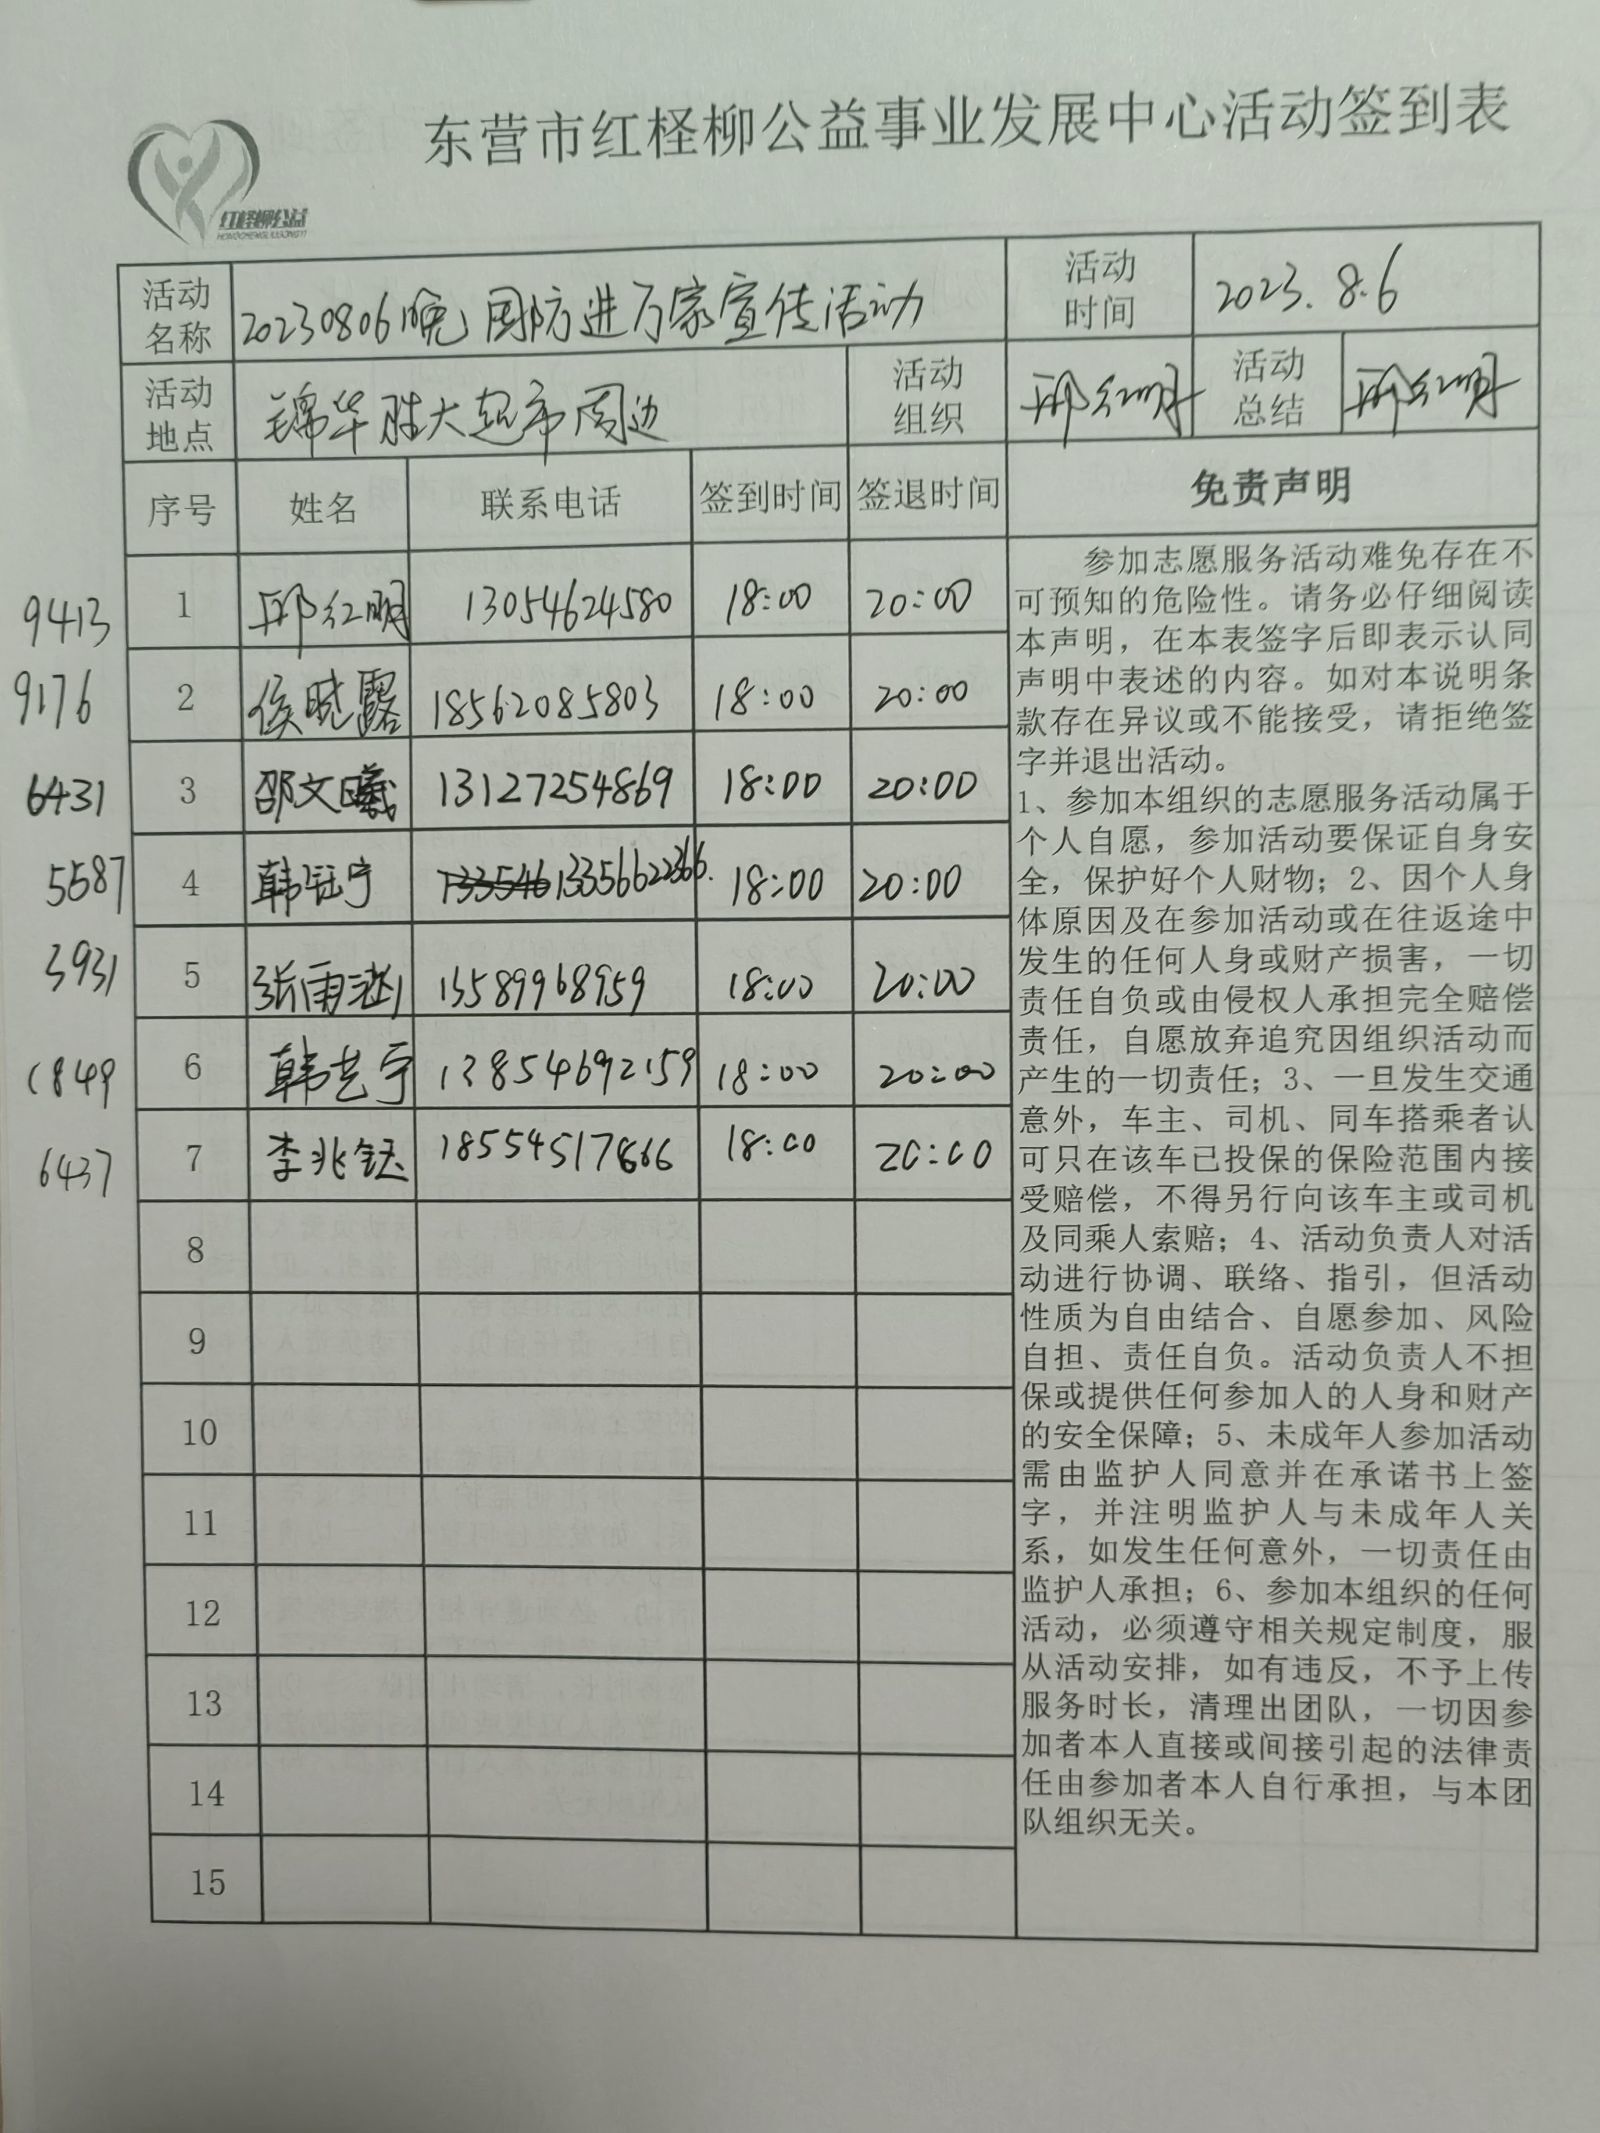 东营市红柽柳公益事业发展中心活动签到表
红柽柳公益
HONGCHENGLIUGONGYI
活动名称 20230806晚 国防进万家宣传活动 活动时间 2023.8.6
活动地点 锦华胜大超市周边 活动组织 邢红明 活动总结 邢红明
序号 姓名 联系电话 签到时间 签退时间 免责声明
9413 1 邢红明 13054624580 18:00 20:00
9176 2 侯晓露 18562085803 18:00 20:00
6431 3 邵文曦 13127254869 18:00 20:00
5587 4 韩钰宁 133546 13356622366. 18:00 20:00
3931 5 张雨 13589968959 18:00 20:00
1849 6 韩艺宁 13854692159 18:00 20:00
6437 7 李兆钰 18554517666 18:00 20:00
8
9
10
11
12
13
14
15
参加志愿服务活动难免存在不
可预知的危险性。请务必仔细阅读
本声明，在本表签字后即表示认同
声明中表述的内容。如对本说明条
款存在异议或不能接受，请拒绝签
字并退出活动。
1、参加本组织的志愿服务活动属于
个人自愿，参加活动要保证自身安
全，保护好个人财物；2、因个人身
体原因及在参加活动或在往返途中
发生的任何人身或财产损害，一切
责任自负或由侵权人承担完全赔偿
责任，自愿放弃追究因组织活动而
产生的一切责任；3、一旦发生交通
意外，车主、司机、同车搭乘者认
可只在该车已投保的保险范围内接
受赔偿，不得另行向该车主或司机
及同乘人索赔；4、活动负责人对活
动进行协调、联络、指引，但活动
性质为自由结合、自愿参加、风险
自担、责任自负。活动负责人不担
保或提供任何参加人的人身和财产
的安全保障；5、未成年人参加活动
需由监护人同意并在承诺书上签
字，并注明监护人与未成年人关
系，如发生任何意外，一切责任由
监护人承担；6、参加本组织的任何
活动，必须遵守相关规定制度，服
从活动安排，如有违反，不予上传
服务时长，清理出团队，一切因参
加者本人直接或间接引起的法律责
任由参加者本人自行承担，与本团
队组织无关。